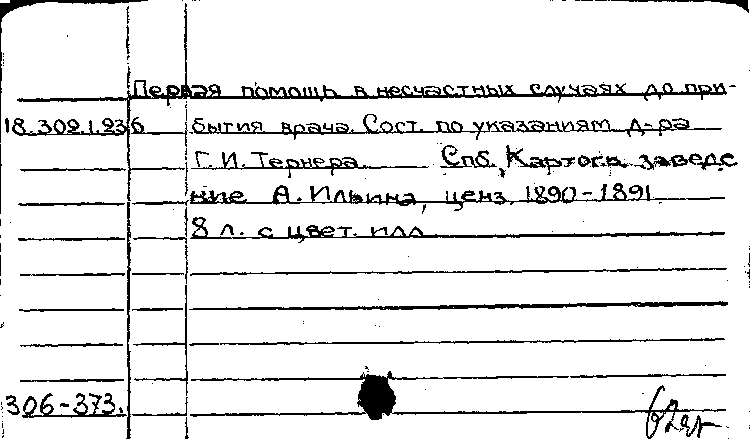 Первая помощь в несчастных случаях до при-
18.302.1.236 бытия врача. Сост. по указаниям д-ра
Г. И. Тернера. Спб, Картогр. заведе
ние А. Ильина, ценз. 1890-1891.
8 л. с цвет. илл
306-373.